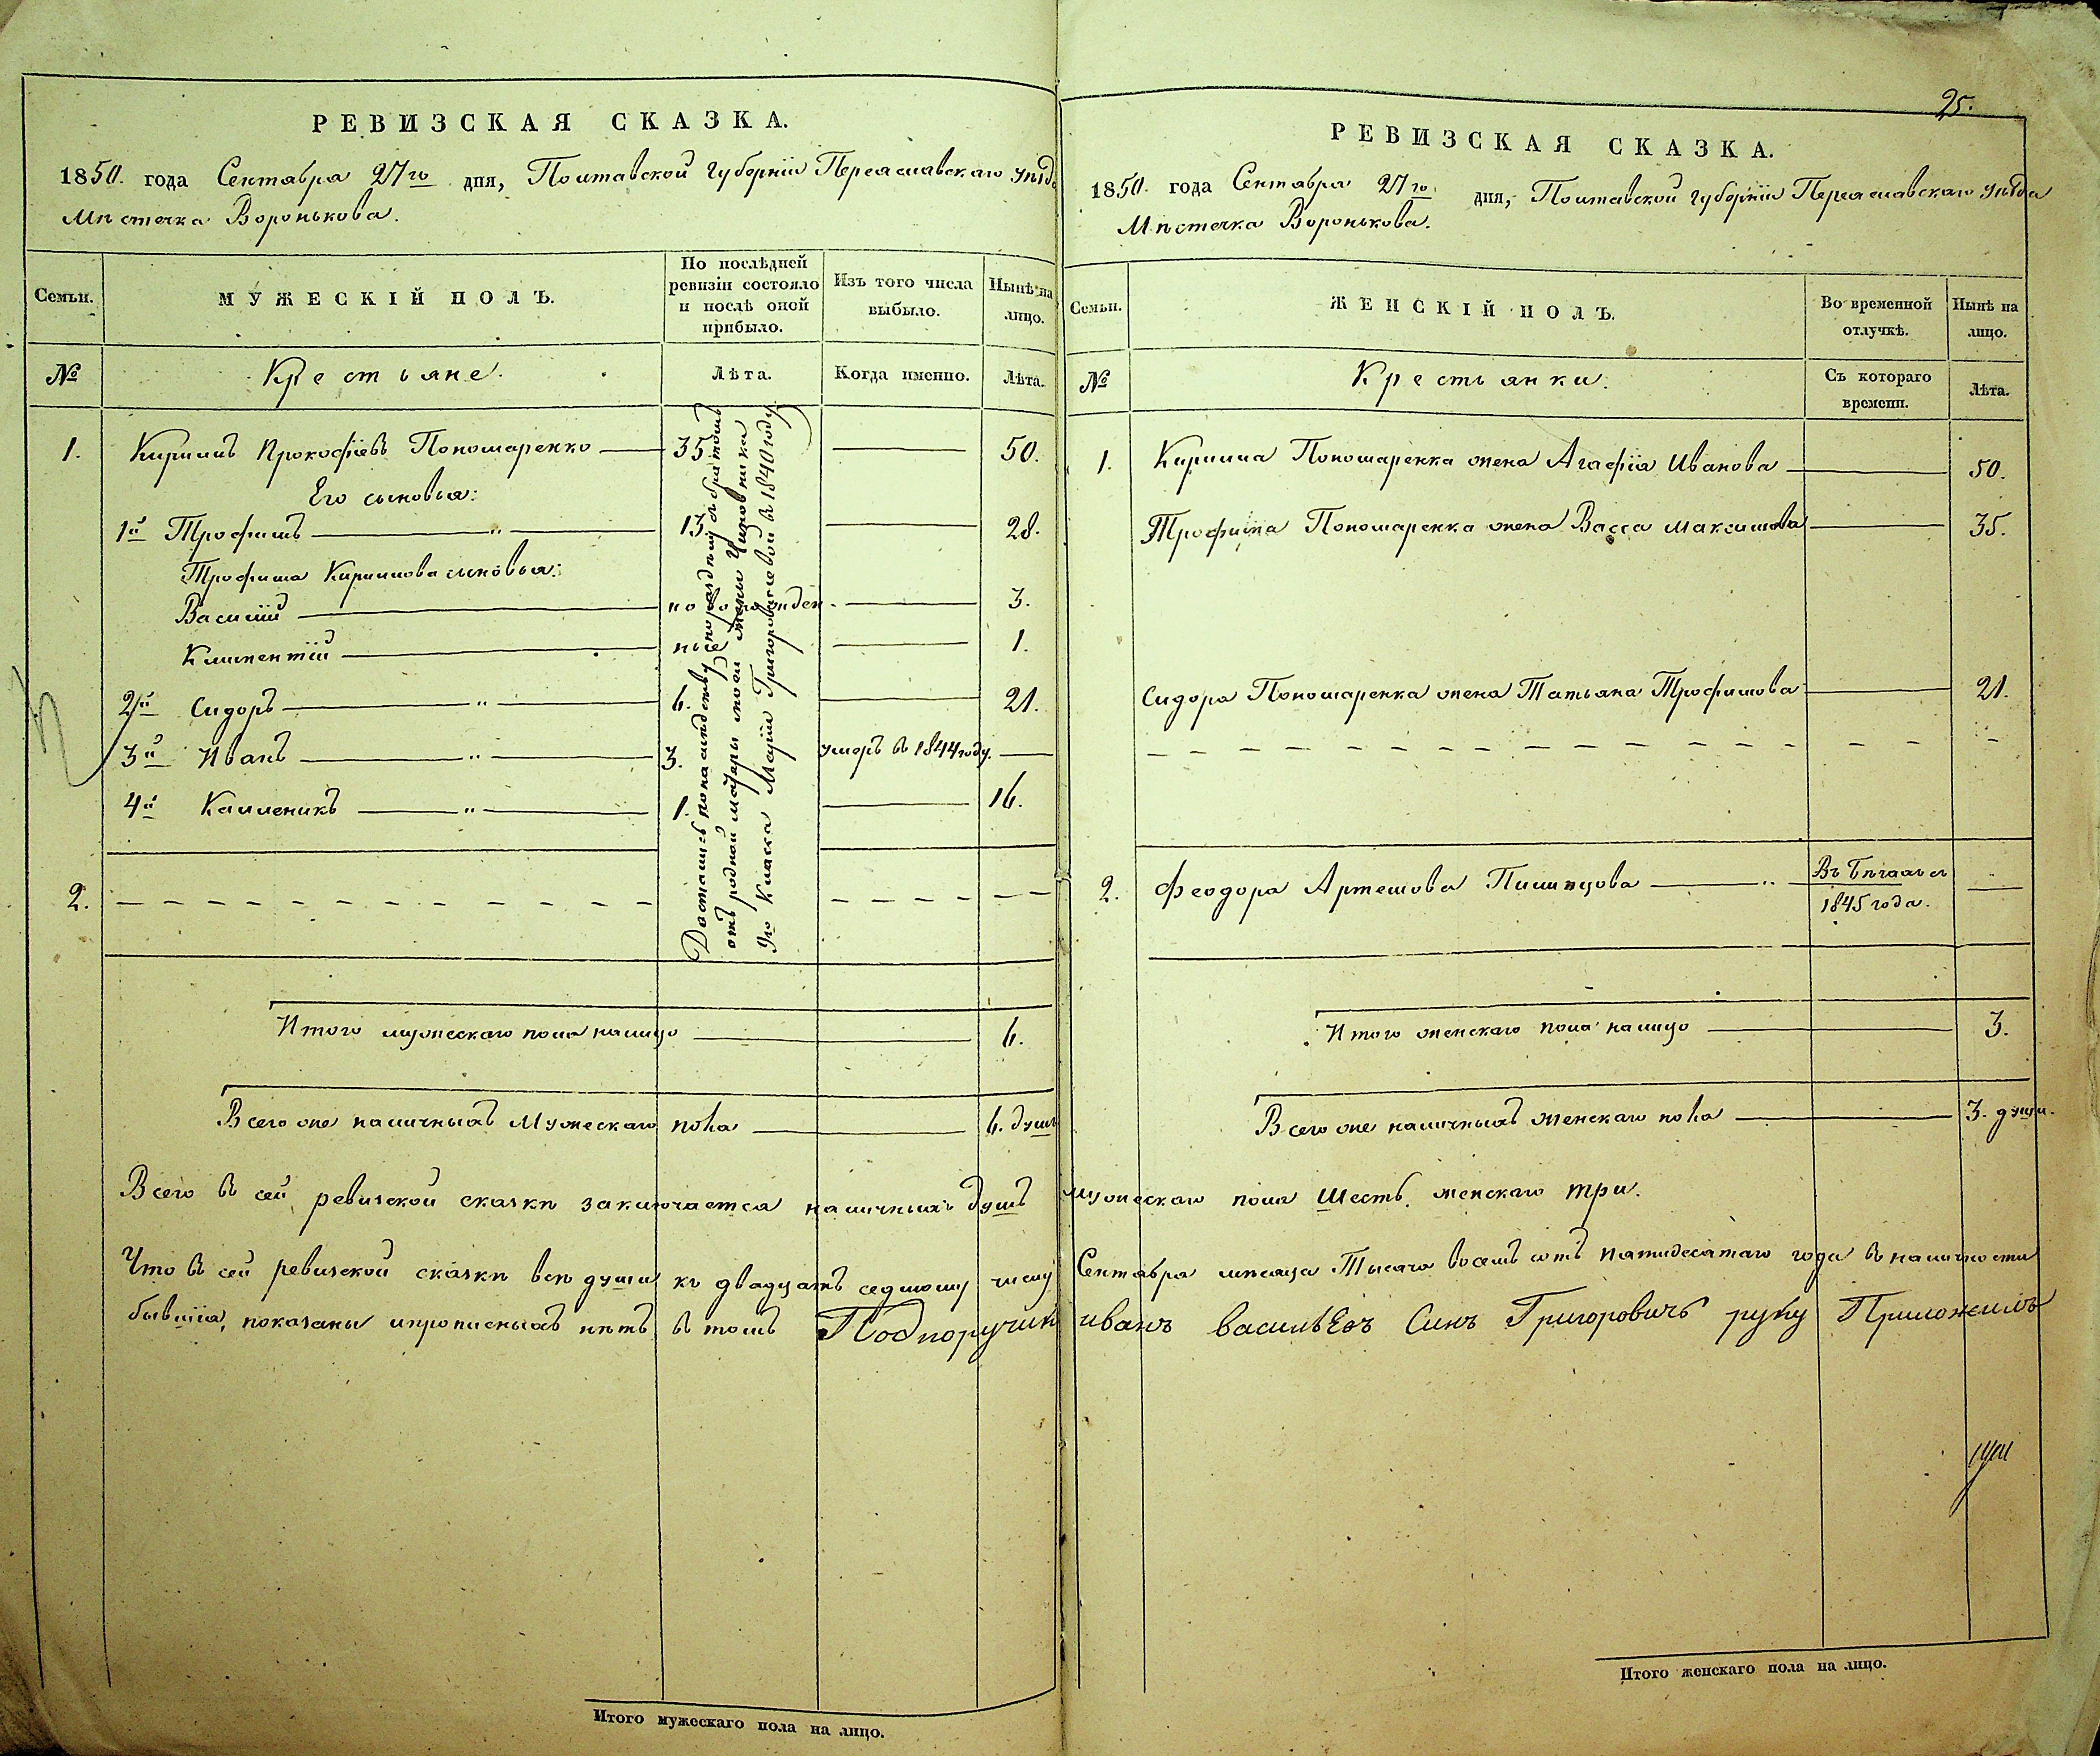 РЕВИЗСКАЯ СКАЗКА.
1850. года Сентября 27го дня, Полтавской Губерніи Переяславскаго уѣзда
Мѣстечка Воронькова.
Семьи.
МУЖЕСКІЙ ПОЛЪ.
По послѣдней ревизіи состояло и послѣ оной прибыло.
Изъ того числа выбыло.
Нынѣ на лицо.
№
Крестьяне.
Лѣта.
Когда именно.
Лѣта.
1. Кирилъ Прокофіевъ Пономаренко 35 50.
Его сыновья:
1й Трофимъ " 13 28.
Трофима Кирилова сыновья:
Василій новорожден. 3.
Климентій 1.
2й Сидоръ " 6. 21.
3й Иванъ " 3. умеръ въ 1844 году.
4й Каленикъ " 1. 16.
Достались по наслѣдству по раздѣлу съ братомъ
отъ родной матери моей жены Чиновника
9го Класса Маріи Григоровичевой въ 1840 году
2.
Итого мужескаго пола налицо 6.
Всего же наличныхъ Мужескаго пола 6. душъ
25.
РЕВИЗСКАЯ СКАЗКА.
1850. года Сентября 27го дня, Полтавской губерніи Переяславскаго уѣзда
Мѣстечка Воронькова.
Семьи.
ЖЕНСКІЙ ПОЛЪ.
Во временной отлучкѣ.
Нынѣ на лицо.
№
Крестьянки.
Съ котораго времени.
Лѣта.
1. Кирила Пономаренка жена Агафія Иванова 50.
Трофима Пономаренка жена Васса Максимова 35.
Сидора Пономаренка жена Татьяна Трофимова 21.
2. Феодора Артемова Пилипцова " Въ бѣгахъ съ
1845 года.
Итого женскаго пола налицо 3.
Всего же наличныхъ женскаго пола 3. души.
Всего въ сей ревизской сказкѣ заключается наличныхъ душъ мужескаго пола шесть. женскаго три.
Что въ сей ревизской сказкѣ всѣ души къ двадцать седьмому числу Сентября мѣсяца Тысяча восемь сотъ пятидесятаго года въ наличности
бывшія, показаны и прописныхъ нѣтъ въ томъ Подпоручик иванъ васильевъ Синъ Григоровичъ руку Приложилъ
Итого мужескаго пола на лицо.
Итого женскаго пола на лицо.